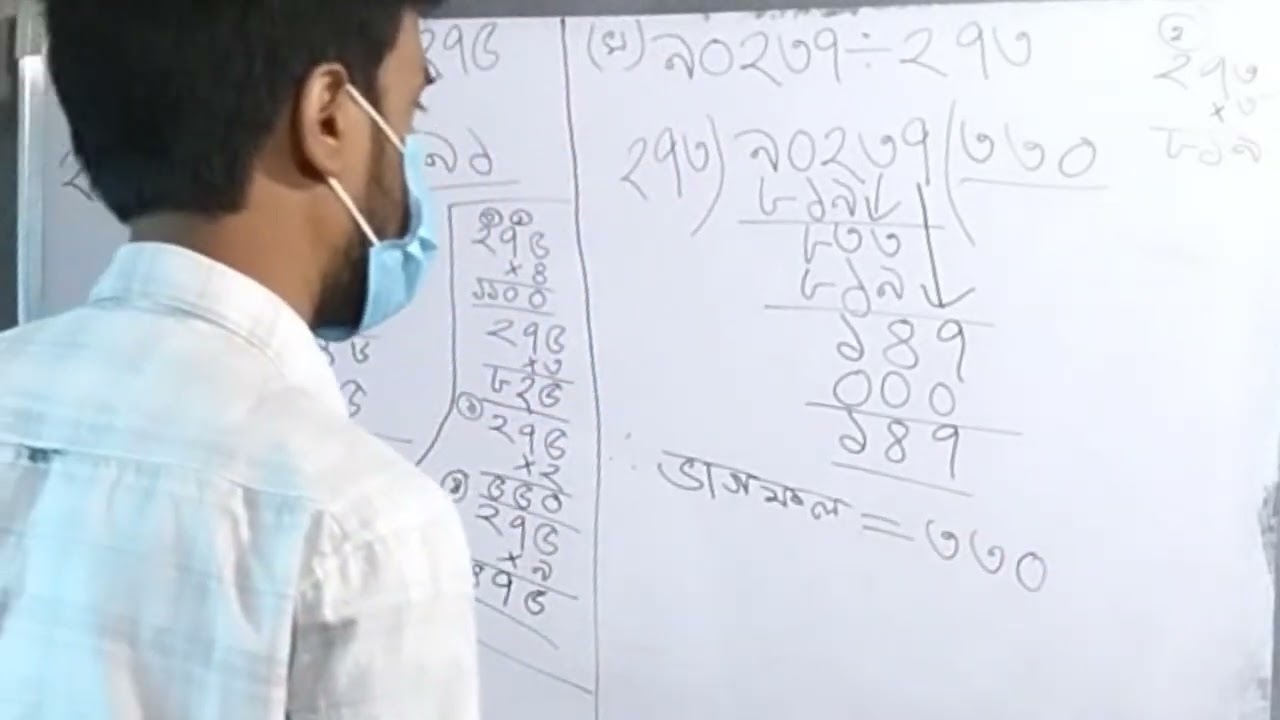 ২৭৫
৯১
২৭৫
×৪
১১০০
২৭৫
×৩
৮২৫
২৭৫
×২
৫৫০
২৭৫
×৯
৭৫
(ঘ) ৯০২৩৭÷২৭৩
২৭৩)৯০২৩৭(৩৩০
৮১৯
৮৩৩
৮১৯
১৪৭
০০০
১৪৭
∴ ভাগফল = ৩৩০
২
২৭৩
×৩
৮১৯